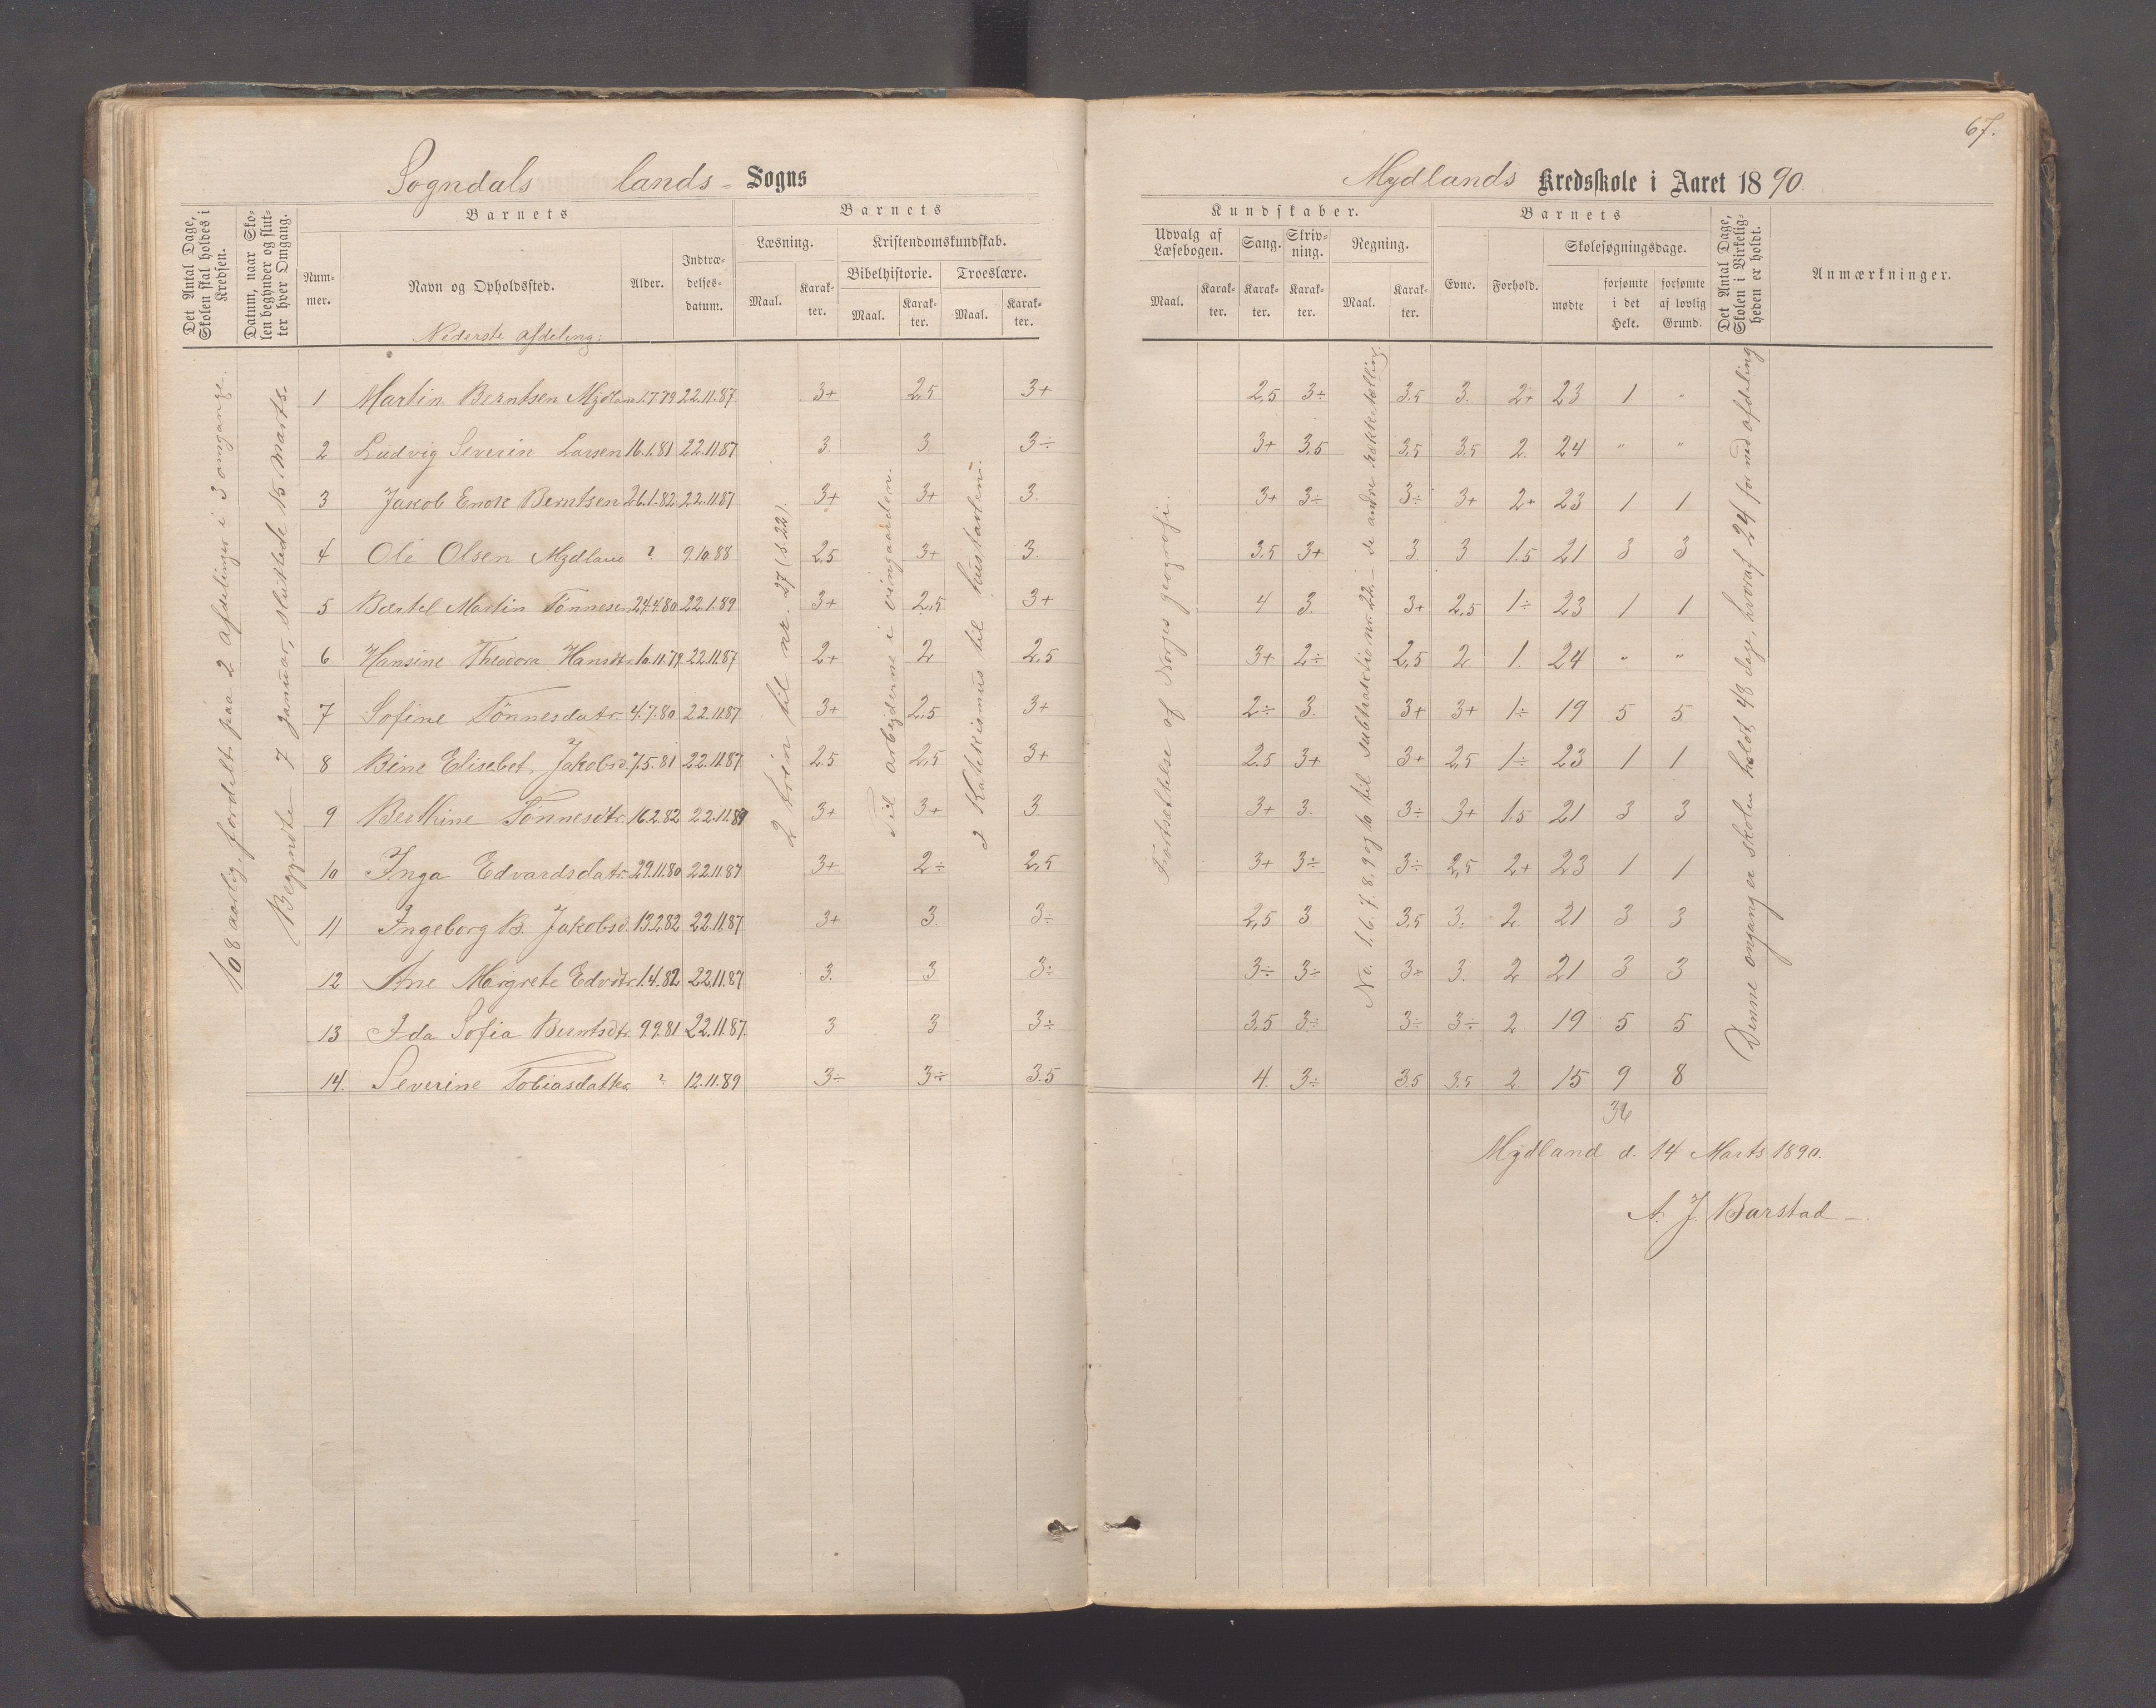 67.
Sogndals lands- Sogns
Mydlands Kredsskole i Aaret 1890.
Det Antal Dage, Skolen skal holdes i Kredsen.
Datum, naar Skolen begynder og slutter hver Omgang.
Barnets
Nummer.
Navn og Opholdssted.
Alder.
Indtrædelsesdatum.
Barnets
Læsning.
Maal.
Karakter.
Kristendomskundskab.
Bibelhistorie.
Maal.
Karakter.
Troeslære.
Maal.
Karakter.
Kundskaber.
Udvalg af Læsebogen.
Maal.
Karakter.
Sang.
Karakter.
Skrivning.
Karakter.
Regning.
Maal.
Karakter.
Barnets
Evne.
Forhold.
Skolesøgningsdage.
mødte
forsømte i det Hele.
forsømte af lovlig Grund.
Det Antal Dage, Skolen i Virkeligheden er holdt.
Anmærkninger.
Nederste afdeling:
108 aarlig, fordelt paa 2 afdelinger i 3 omgange.
Begyndte 7 januar, sluttede 15 marts.
2 trin til nr. 27 (s. 22).
Til arbejderne i vingaarden.
2 Katekismus til hustavlen.
Fortsættelse af Norges geografi.
No. 1. 6. 7. 8. 9 og 10 til subtraktio nr. 22. – de andre rækketælling.
Denne omgang er skolen holdt 48 dage, hvoraf 24 for ned. afdeling
1 Martin Berntsen Mydland 1.7.79 22.11.87 3+ 2,5 3+ 2,5 3÷ 3,5 3. 2+ 23 1 "
2 Ludvig Severin Larsen 16.1.81 22.11.87 3. 3. 3÷ 3+ 3,5 3,5 3,5 2. 24 " "
3 Jakob Enok Berntsen 26.1.82 22.11.87 3+ 3+ 3. 3+ 3÷ 3÷ 3+ 2+ 23 1 1
4 Ole Olsen Mydland ? 9.10.88 2,5 3+ 3. 3,5 3+ 3 3 1.5 21 3 3
5 Bærtel Martin Tønnesen 24.4.80 22.1.89 3+ 2,5 3+ 4 3. 3+ 2,5 1÷ 23 1 1
6 Hansine Theodora Hansdtr. 10.11.79. 22.11.87 2+ 2 2,5 3+ 2÷ 2,5 2 1. 24 " "
7 Sofine Tønnesdatr. 4.7.80 22.11.87 3+ 2,5 3+ 2÷ 3. 3+ 3+ 1÷ 19 5 5
8 Bine Elisebet Jakobsd. 7.5.81 22.11.87 2.5 2,5 3+ 2.5 3+ 3+ 2,5 1÷ 23 1 1
9 Berthine Tønnesdtr. 16.2.82 22.11.89 3+ 3+ 3. 3+ 3. 3÷ 3+ 1.5 21 3 3
10 Inga Edvardsdatr. 29.11.80 22.11.87 3+ 2÷ 2,5 3+ 3÷ 3÷ 2,5 2+ 23 1 1
11 Ingeborg B. Jakobsd. 13.2.82 22.11.87 3+ 3. 3÷ 2,5 3 3,5 3. 2. 21 3 3
12 Ane Margrete Edvdtr. 1.4.82 22.11.87 3. 3 3÷ 3÷ 3÷ 3÷ 3. 2 21 3 3
13 Ida Sofia Berntsdtr. 9.9.81 22.11.87. 3 3 3÷ 3,5 3÷ 3÷ 3÷ 2 19 5 5
14. Severine Tobiasdatter ? 12.11.89 3÷ 3÷ 3.5 4. 3÷ 3.5 3.5 2. 15 9 8
36
Mydland d. 14 Marts 1890.
A. J. Barstad –.